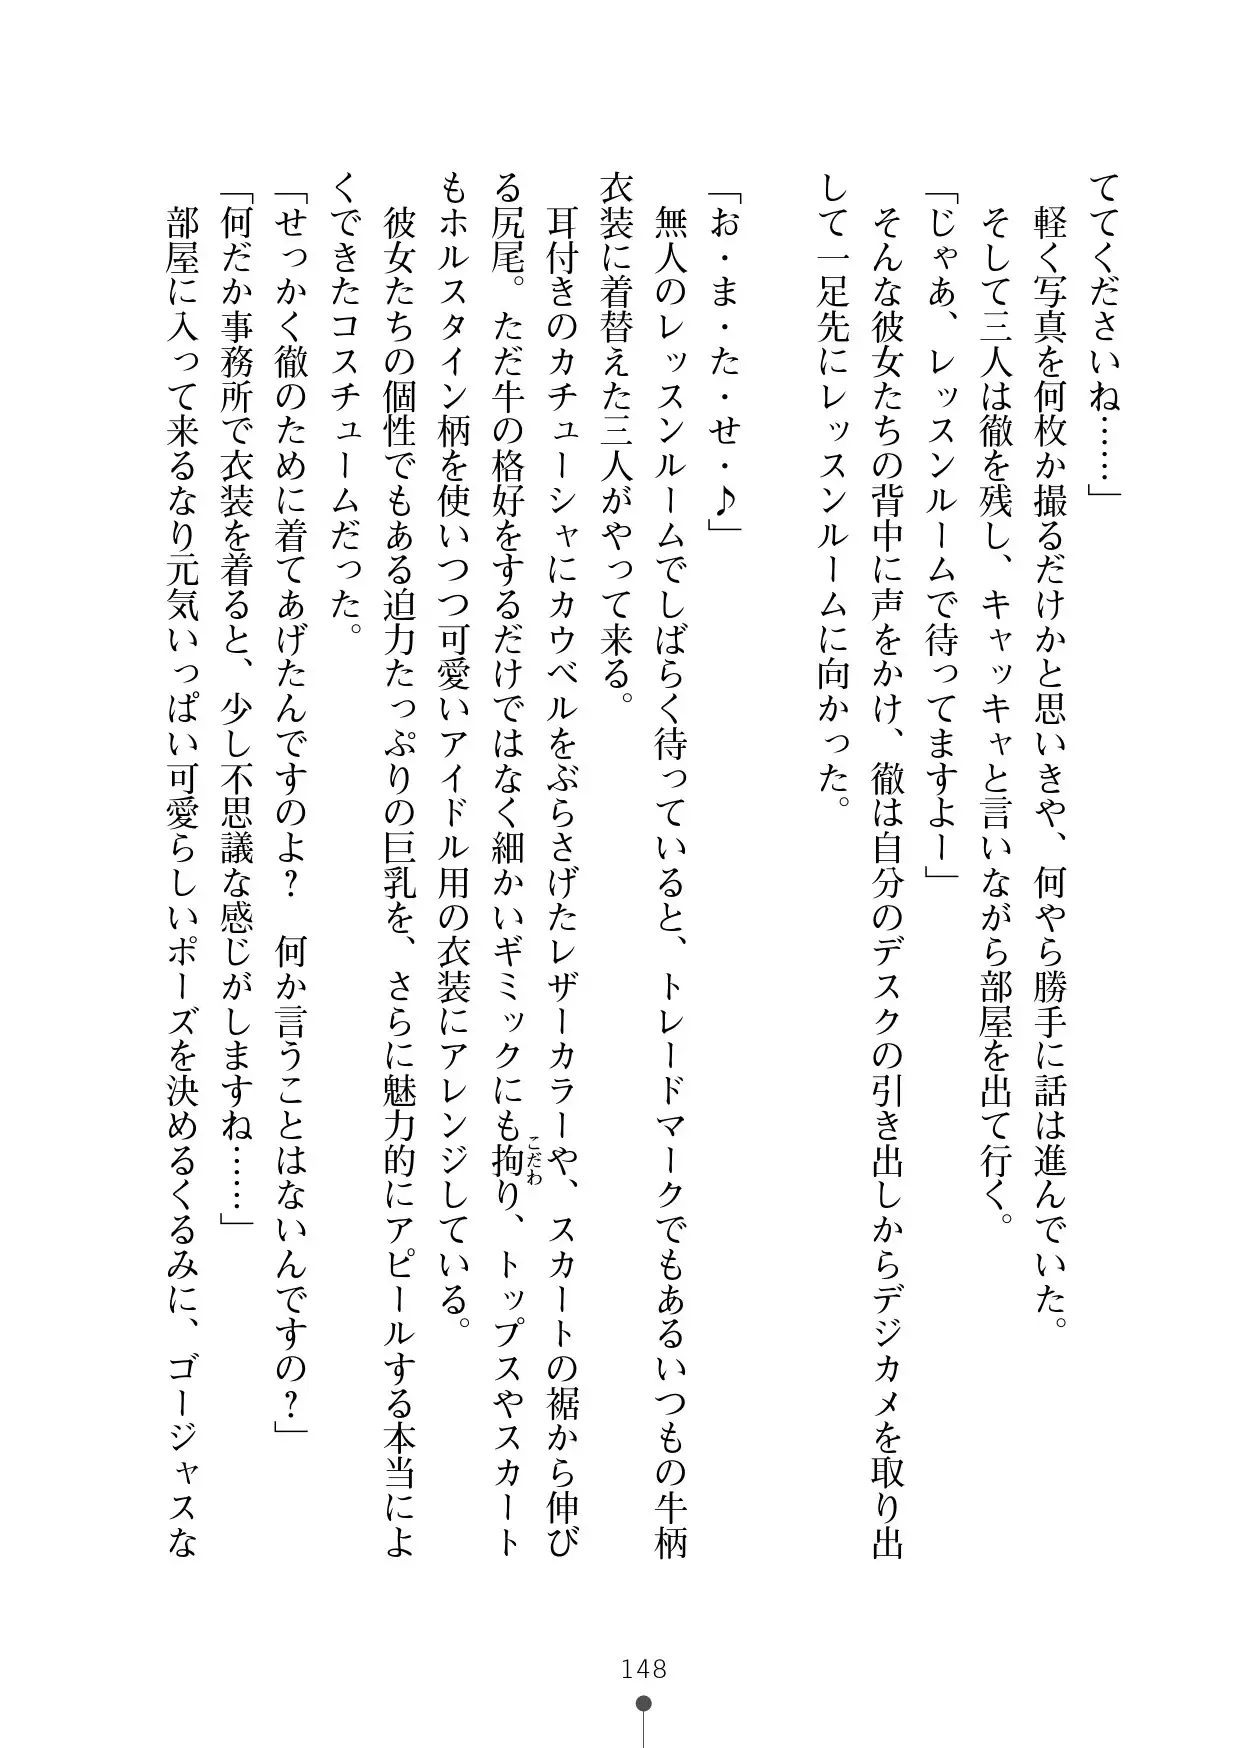 てください���……」
　軽く写真を何枚か撮るだけかと思いきや、何やら勝手に話は進んでいた。
　そして三人は徹を残し、キャッキャと言いながら部屋を出て行く。
「じゃあ、レッスンルームで待ってますよー」
　そんな彼女たちの背中に声をかけ、徹は自分のデスクの引き出しからデジカメを取り出
して一足先にレッスンルームに向かった。
「お・ま・た・せ・♪」
　無人のレッスンルームでしばらく待っていると、トレードマークでもあるいつもの牛柄
衣装に着替えた三人がやって来る。
　耳付きのカチューシャにカウベルをぶらさげたレザーカラーや、スカートの裾から伸び
る尻尾。ただ牛の格好をするだけではなく細かいギミックにも拘り、トップスやスカート
こだわ
もホルスタイン柄を使いつつ可愛いアイドル用の衣装にアレンジしている。
　彼女たちの個性でもある迫力たっぷりの巨乳を、さらに魅力的にアピールする本当によ
くできたコスチュームだった。
「せっかく徹のために着てあげたんですのよ？　何か言うことはないんですの？」
「何だか事務所で衣装を着ると、少し不思議な感じがしますね……」
　部屋に入って来るなり元気いっぱい可愛らしいポーズを決めるくるみに、ゴージャスな
148